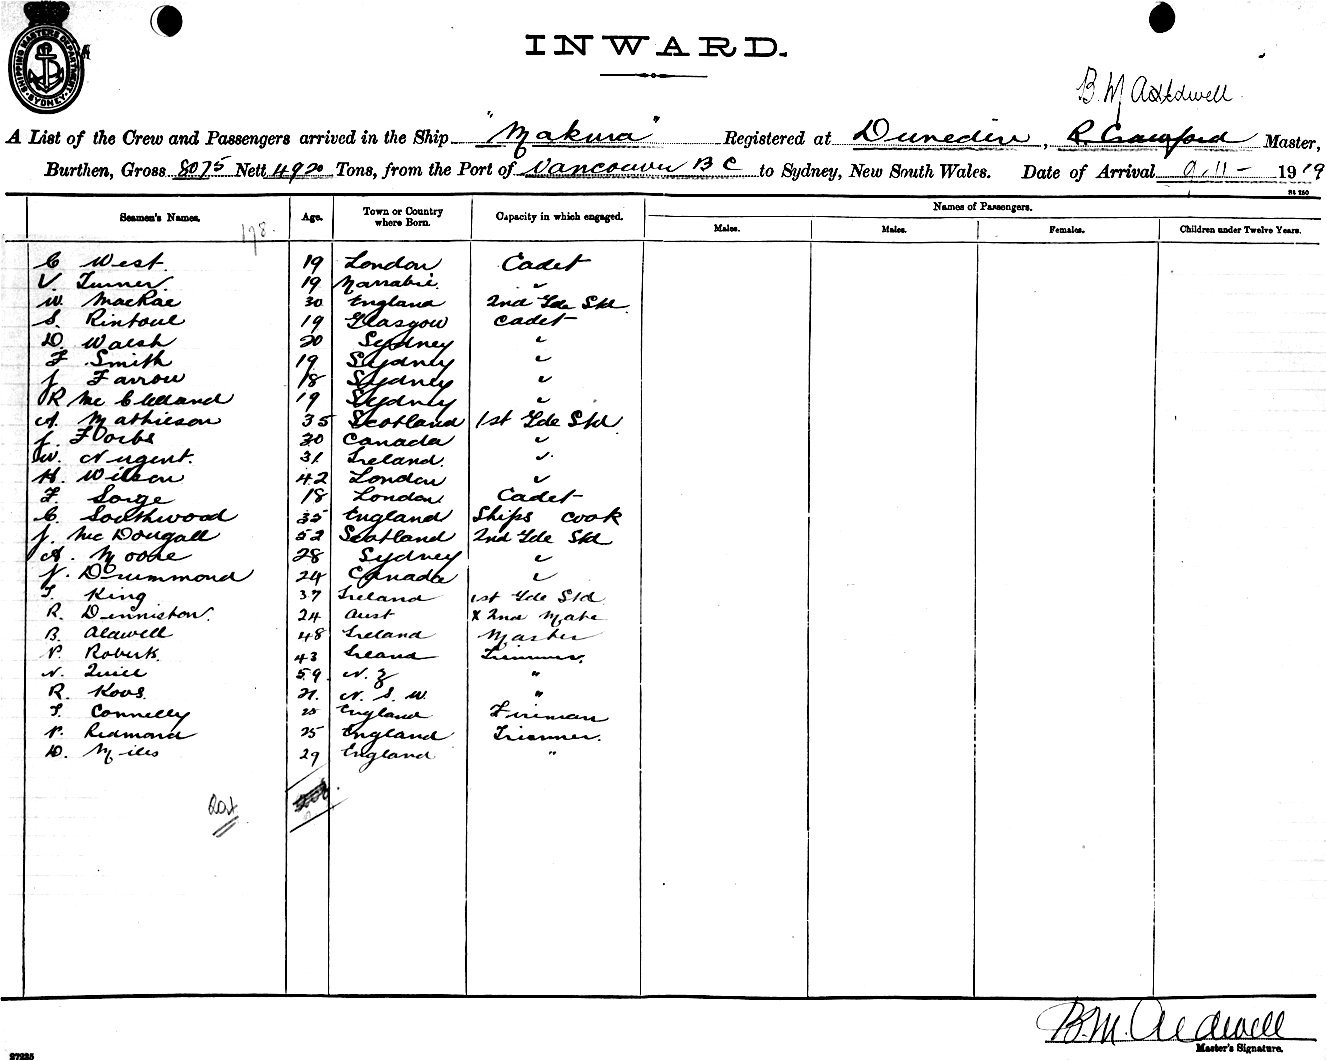 SHIPPING MASTERS DEPARTMENT SYDNEY
INWARD.
B. M Aldwell
A List of the Crew and Passengers arrived in the Ship "Makura" Registered at Dunedin, R. Crawford Master,
Burthen, Gross 8075 Nett 4920 Tons, from the Port of Vancouver B C to Sydney, New South Wales. Date of Arrival 9.11- 1919
Seamen's Names. Age. Town or Country where Born. Capacity in which engaged. Names of Passengers.
Males. Males. Females. Children under Twelve Years.
178.
C West. 19 London Cadet
V. Turner. 19 Narrabri. "
W. MacRae 30 England 2nd Gde Std.
S. Rintoul 19 Glasgow Cadet
D. Walsh 20 Sydney "
F Smith 19 Sydney "
J Farrow 18 Sydney "
R McClelland 19 Sydney "
A. Mathieson 35 Scotland 1st Gde Std
J. Forbs 30 Canada "
W. Nugent. 31 Ireland. "
H. Wilson 42 London "
F. Sorge 18 London Cadet
C. Southwood 35 England Ships Cook
J. McDougall 52 Scotland 2nd Gde Std
A. Moore 28 Sydney "
J. Drummond 24 Canada "
T. King 37 Ireland 1st Gde Std
R. Denniston. 24 Aust X 2nd Mate
B. Aldwell 48 Ireland Master
P. Roberts. 43 Ireland Trimmer.
N. Quill 59 N. Z "
R. Koos. 21. N. S. W "
T. Connelly 25 England Fireman
P. Redmond 25 England Trimmer.
D. Miles 29 England "
B.M. Aldwell
Master's Signature.
27225